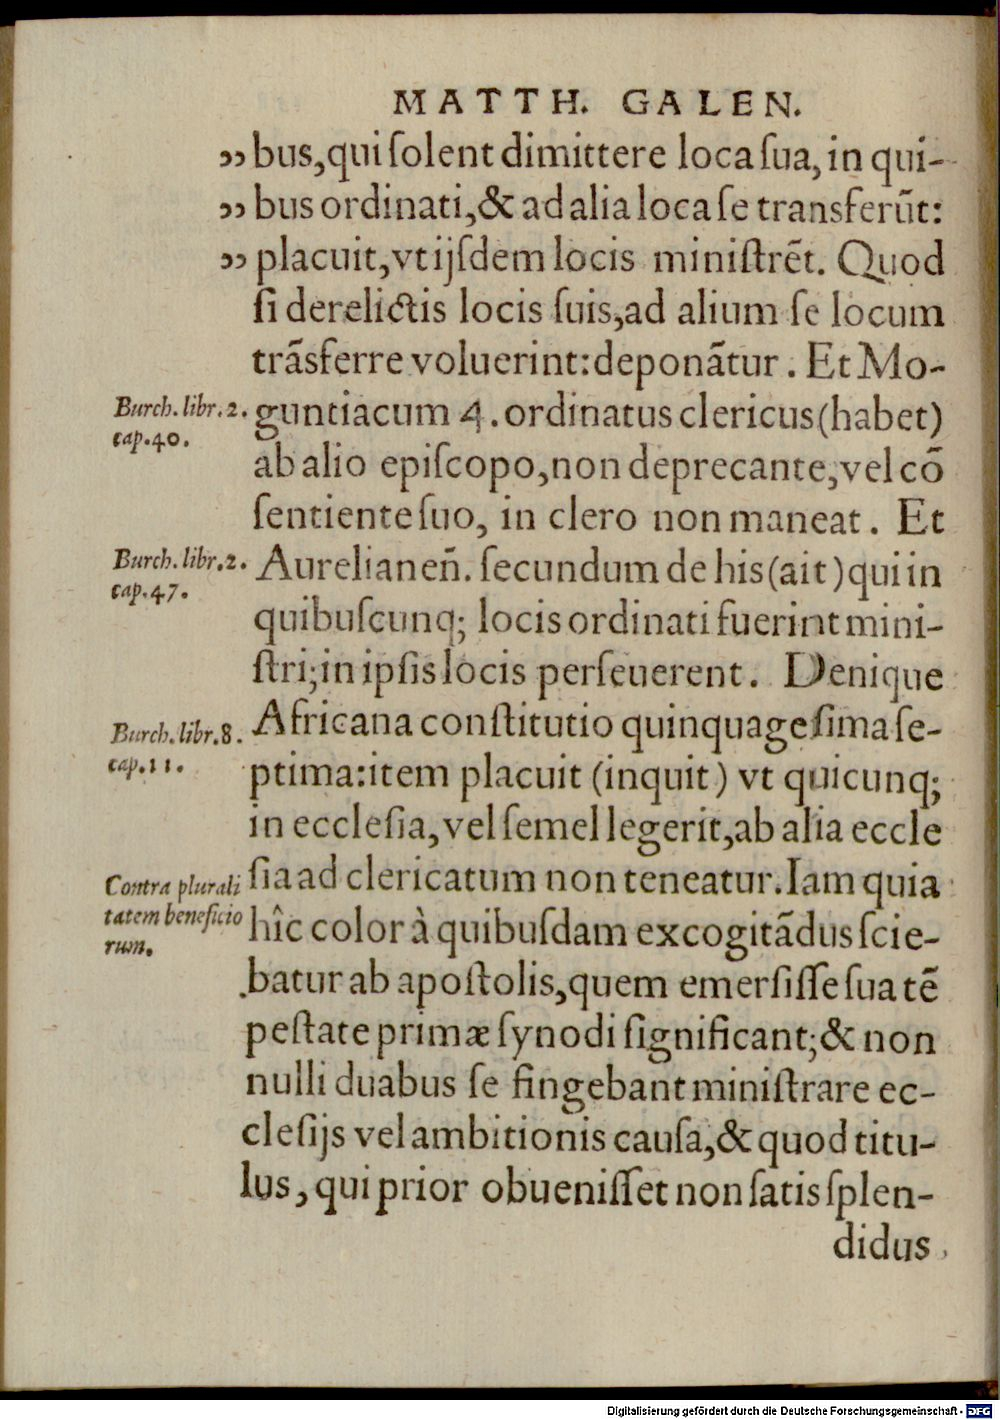 MATTH. GALEN.
„ bus, qui ſolent dimittere loca ſua, in qui-
„ bus ordinati, & ad alia loca ſe transferũt:
„ placuit, vt ijſdem locis miniſtrẽt. Quod
ſi derelictis locis ſuis, ad alium ſe locum
trãsferre voluerint: deponãtur. Et Mo-
Burch. libr. 2.
cap. 40.
guntiacum 4. ordinatus clericus (habet)
ab alio epiſcopo, non deprecante, vel cõ
ſentiente ſuo, in clero non maneat. Et
Burch. libr. 2.
cap. 47.
Aurelianen̄. ſecundum de his (ait) qui in
quibuſcunq; locis ordinati fuerint mini-
ſtri; in ipſis locis perſeuerent. Denique
Burch. libr. 8.
cap. 11.
Africana conſtitutio quinquageſima ſe-
ptima: item placuit (inquit) vt quicunq;
in eccleſia, vel ſemel legerit, ab alia eccle
ſia ad clericatum non teneatur. Iam quia
Contra plurali
tatem beneficio
rum.
hîc color à quibuſdam excogitãdus ſcie-
batur ab apoſtolis, quem emerſiſſe ſua tẽ
peſtate primæ ſynodi ſignificant; & non
nulli duabus ſe fingebant miniſtrare ec-
cleſijs vel ambitionis cauſa, & quod titu-
lus, qui prior obueniſſet non ſatis ſplen-
didus,
Digitalisierung gefördert durch die Deutsche Forschungsgemeinschaft - DFG